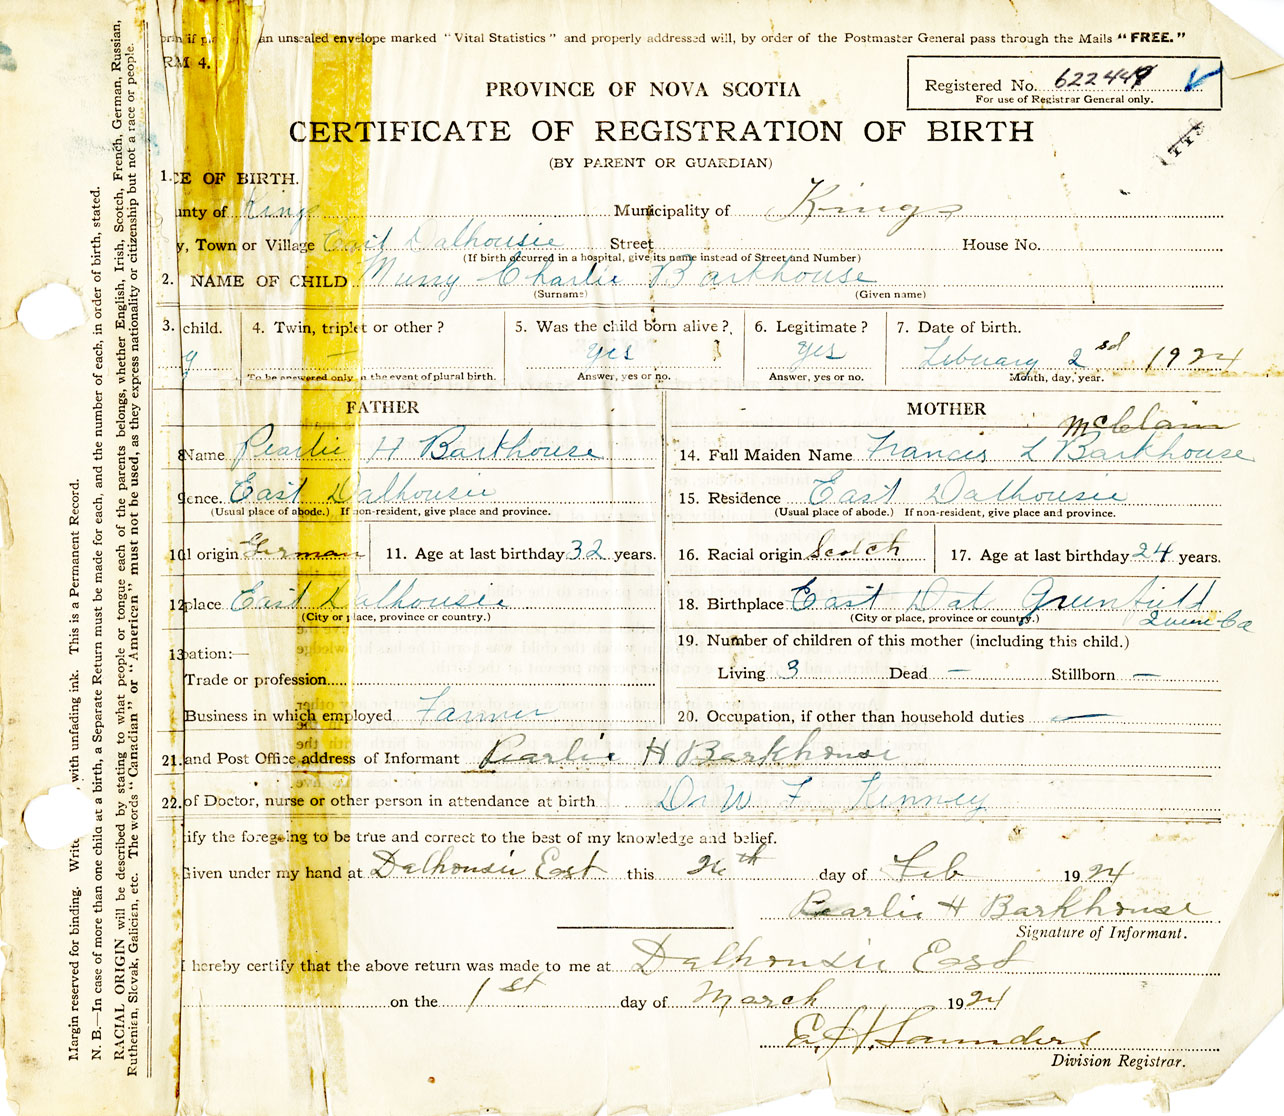 an unsealed envelope marked "Vital Statistics" and properly addressed will, by order of the Postmaster General pass through the Mails "FREE."
RM 4.
Registered No. 622449
For use of Registrar General only.
PROVINCE OF NOVA SCOTIA
CERTIFICATE OF REGISTRATION OF BIRTH
(BY PARENT OR GUARDIAN)
1. CE OF BIRTH.
unty of Kings Municipality of Kings
y, Town or Village East Dalhousie Street House No.
(If birth occurred in a hospital, give its name instead of Street and Number)
2. NAME OF CHILD Murry Charlie Barkhouse
(Surname) (Given name)
3. child. 4. Twin, triplet or other? — 5. Was the child born alive? yes 6. Legitimate? yes 7. Date of birth. February 2nd 1924
y To be answered only in the event of plural birth. Answer, yes or no. Answer, yes or no. Month, day, year.
FATHER MOTHER
McClain
8 Name Pearlie H Barkhouse 14. Full Maiden Name Francis L Barkhouse
9 ence. East Dalhousie 15. Residence East Dalhousie
(Usual place of abode.) If non-resident, give place and province. (Usual place of abode.) If non-resident, give place and province.
10 l origin German 11. Age at last birthday 32 years. 16. Racial origin Scotch 17. Age at last birthday 24 years.
12 place East Dalhousie 18. Birthplace East Dal Greenfield
(City or place, province or country.) (City or place, province or country.) Queen Co
13 pation:— 19. Number of children of this mother (including this child.)
Trade or profession Living 3 Dead — Stillborn —
Business in which employed Farmer 20. Occupation, if other than household duties —
21. and Post Office address of Informant Pearlie H Barkhouse
22. of Doctor, nurse or other person in attendance at birth Dr W F Kenney
tify the foregoing to be true and correct to the best of my knowledge and belief.
Given under my hand at Dalhousie East this 26th day of Feb 1924
Pearlie H Barkhouse
Signature of Informant.
I hereby certify that the above return was made to me at Dalhousie East
on the 1st day of March 1924
E. H. Saunders
Division Registrar.
Margin reserved for binding. Write , with unfading ink. This is a Permanent Record.
N. B.—In case of more than one child at a birth, a Separate Return must be made for each, and the number of each, in order of birth, stated.
RACIAL ORIGIN will be described by stating to what people or tongue each of the parents belongs, whether English, Irish, Scotch, French, German, Russian,
Ruthenian, Slovak, Galician, etc. The words "Canadian" or "American" must not be used, as they express nationality or citizenship but not a race or people.